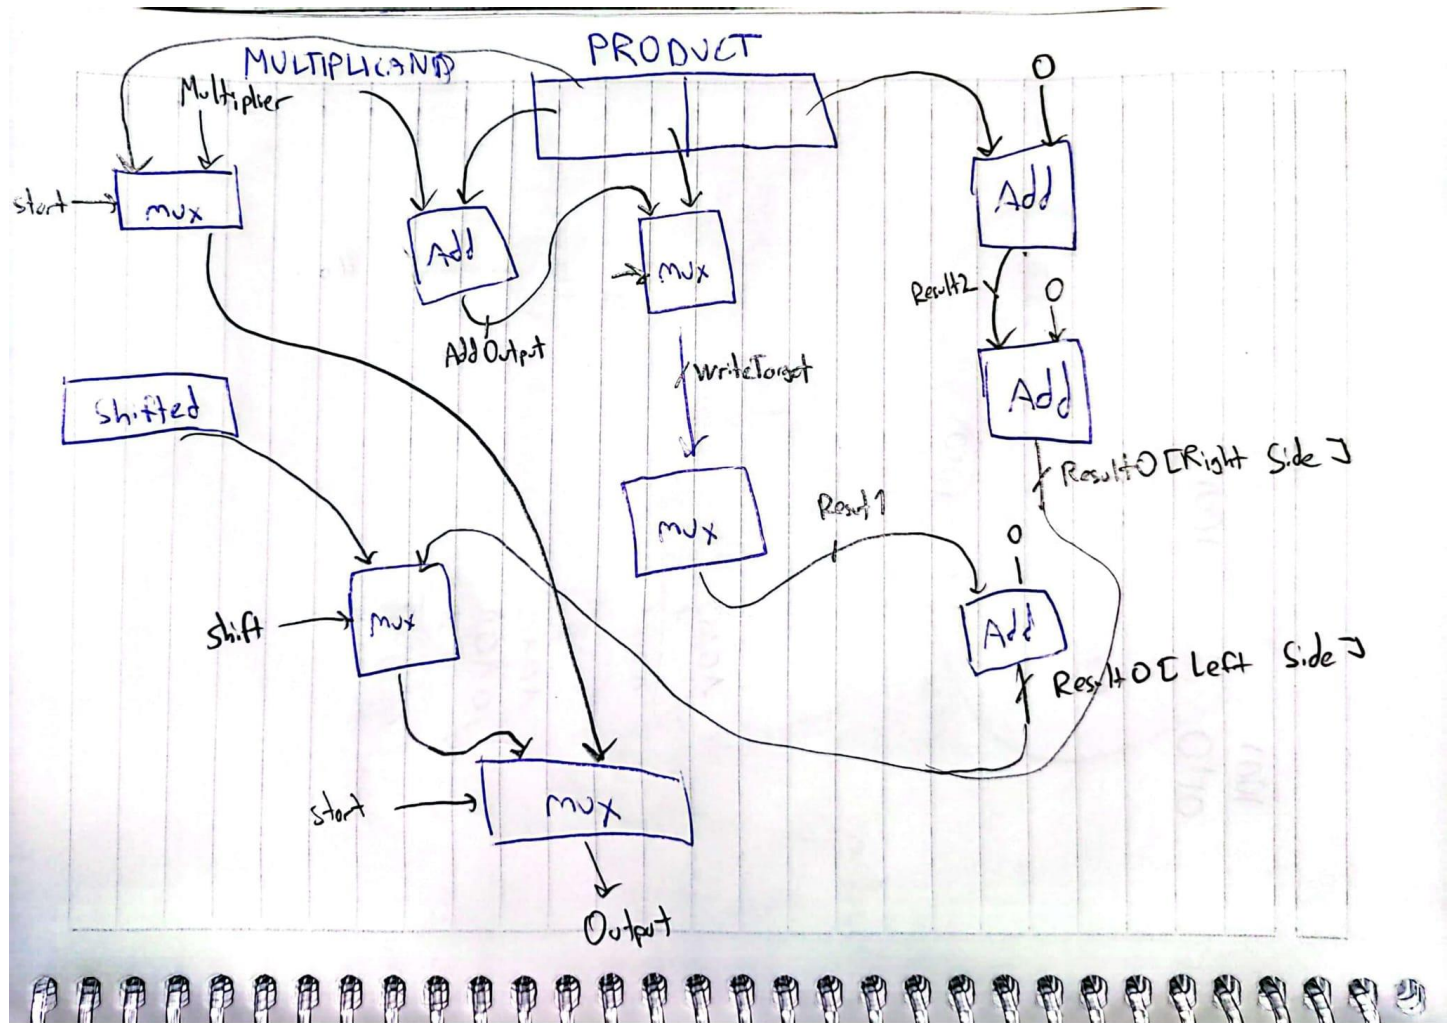 PRODUCT
MULTIPLICAND
Multiplier
0
start
mux
Add
mux
Add
Result2
0
Add Output
WriteTarget
Add
Shifted
Result0 [Right Side]
mux
Result1
0
shift
mux
Add
Result0 [Left Side]
start
mux
Output